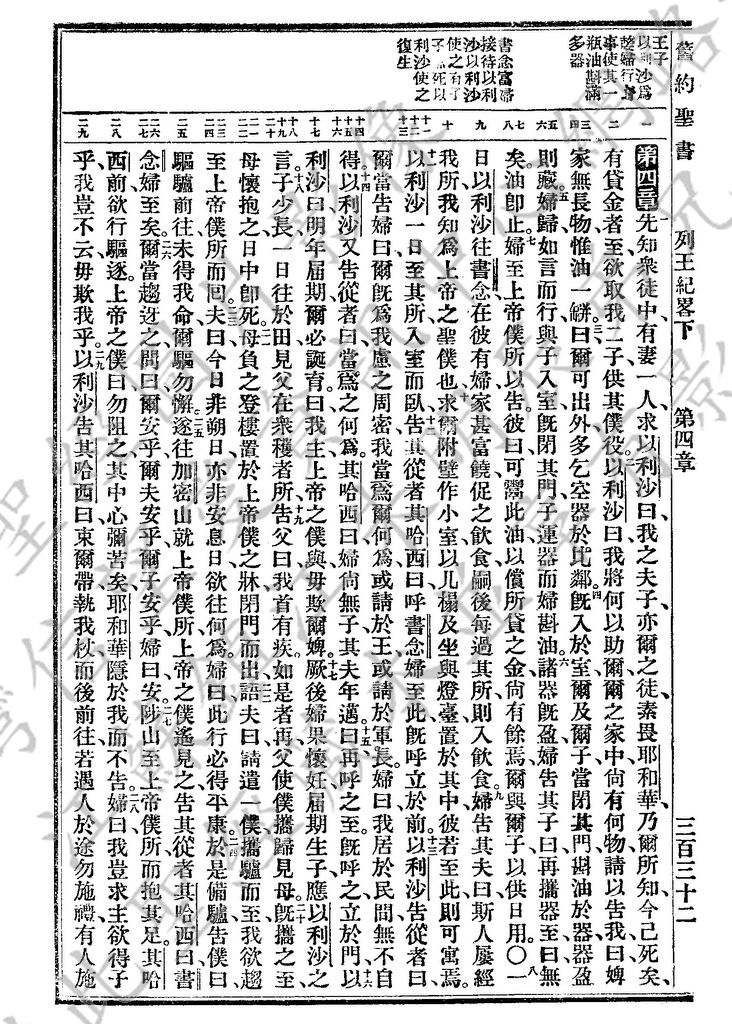 舊約聖書 列王紀畧下 第四章 三百三十二
王子
以利沙爲
嫠婦行
事使其一
瓶油斟滿
多器
書念富婦
接待以利
沙以利沙
使之有子
子死以
利沙使之
復生
一
二
三
四
五
六
七
八
九
十
十一
十二
十三
十四
十五
十六
十七
十八
十九
二十
二一
二二
二三
二四
二五
二六
二七
二八
二九
第四章 先知衆徒中有妻一人求以利沙曰我之夫子亦爾之徒素畏耶和華乃爾所知今已死矣、
有貸金者至欲取我二子供其僕役、二以利沙曰我將何以助爾爾之家中尙有何物請以告我曰婢
家無長物惟油一缾、三曰爾可出外多乞空器於比鄰、四旣入於室爾及爾子當閉其門斟油於器器盈
則藏、五婦歸如言而行與子入室旣閉其門子運器而婦斟油、六諸器旣盈婦告其子曰再攜器至曰無
矣油卽止、七婦至上帝僕所以告彼曰可鬻此油以償所貸之金尙有餘焉爾與爾子以供日用〇八一
日以利沙往書念在彼有婦家甚富饒促之飲食嗣後每過其所則入飲食、九婦告其夫曰斯人屢經
我所我知爲上帝之聖僕也、十求爾附壁作小室以几榻及坐與燈臺置於其中彼若至此則可寓焉、
十一以利沙一日至其所入室而臥、十二告其從者其哈西曰呼書念婦至此旣呼立於前、十三以利沙告從者曰
爾當告婦曰爾旣爲我慮之周密我當爲爾何爲或請於王或請於軍長婦曰我居於民間無不自
得、十四以利沙又告從者曰當爲之何爲其哈西曰婦尙無子其夫年邁、十五曰再呼之至旣呼之立於門、十六以
利沙曰明年屆期爾必誕育曰我主上帝之僕與毋欺爾婢、十七厥後婦果懷妊屆期生子應以利沙之
言、十八子少長一日往於田見父在衆穫者所、十九告父曰我首有疾如是者再父使僕攜歸見母、二十旣攜之至
母懷抱之日中卽死、二一母負之登樓置於上帝僕之牀閉門而出、二二語夫曰請遣一僕攜驢而至我欲趨
至上帝僕所而回、二三夫曰今日非朔日亦非安息日欲往何爲婦曰此行必得平康、二四於是備驢告僕曰
驅驢前往未得我命爾驅勿懈、二五遂往加密山就上帝僕所上帝之僕遙見之告其從者其哈西曰書
念婦至矣、二六爾當趨迓之問曰爾安乎爾夫安乎爾子安乎婦曰安、二七陟山至上帝僕所而抱其足其哈
西前欲行驅逐上帝之僕曰勿阻之其中心彌苦矣耶和華隱於我而不告、二八婦曰我豈求主欲得子
乎我豈不云毋欺我乎、二九以利沙告其哈西曰束爾帶執我杖而後前往若遇人於途勿施禮有人施